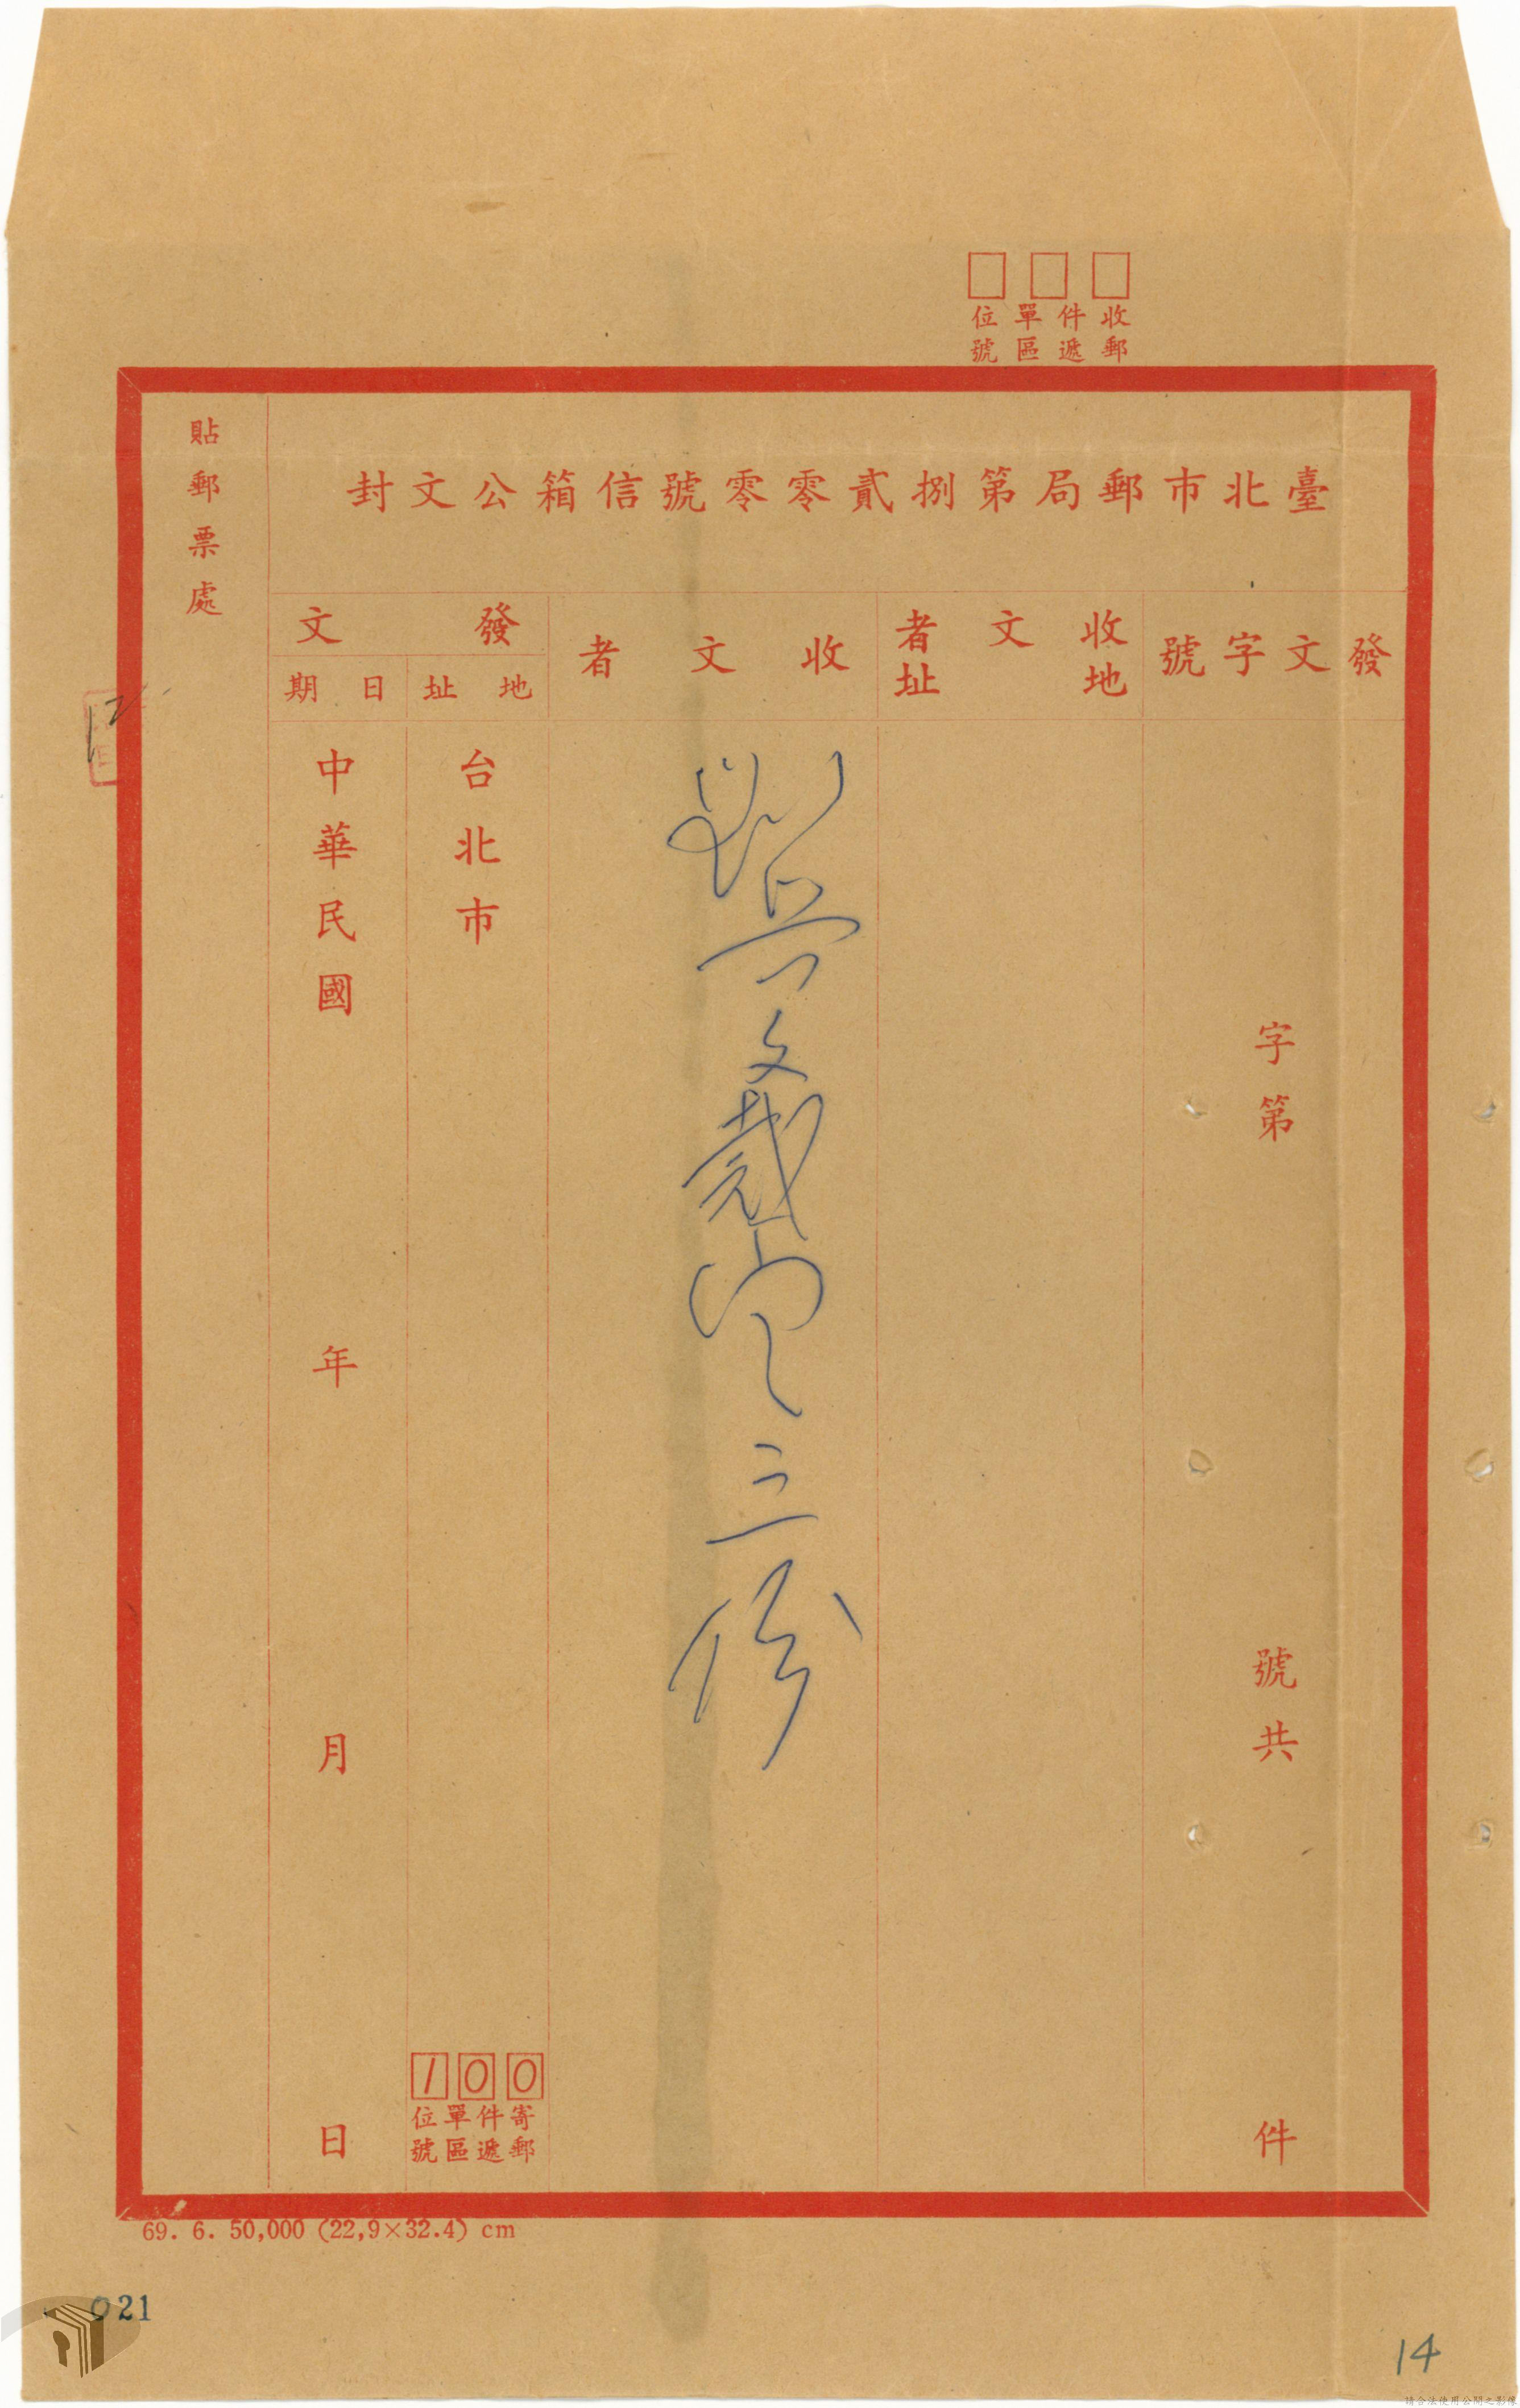 收件單位
郵遞區號
臺北市郵局第捌貳零零號信箱公文封
發文字號
收文者
地址
收文者
發文
地址
日期
貼郵票處
字第
號共
件
文
三份
台北市
100
寄件單位
郵遞區號
中華民國
年
月
日
12
69. 6. 50,000 (22,9×32.4) cm
021
14
請合法使用公開之影像